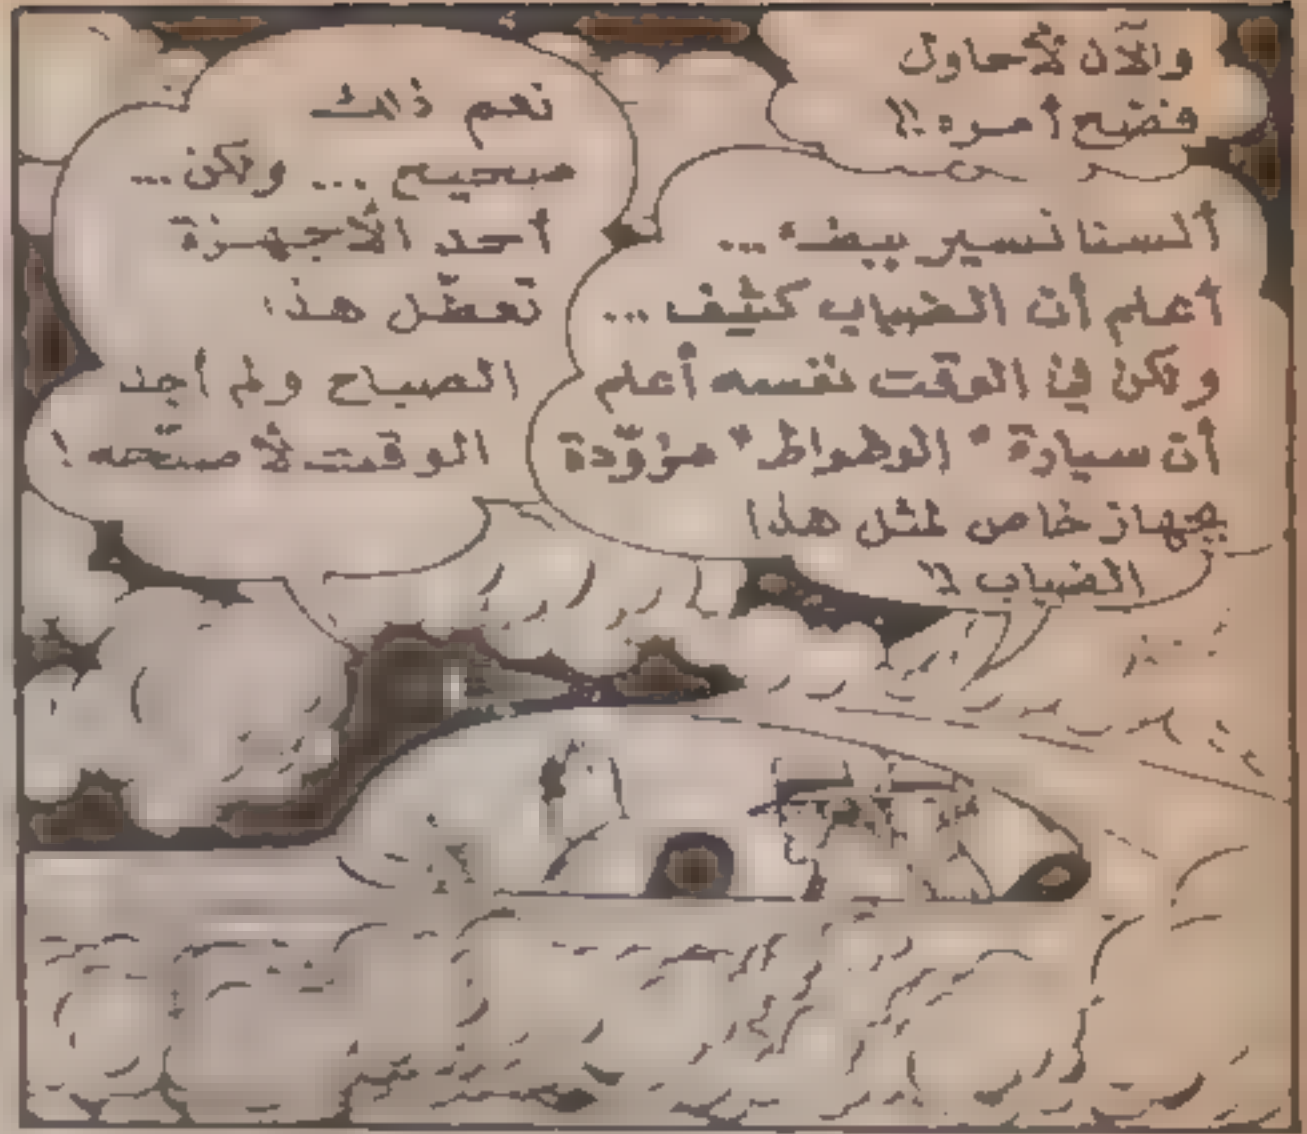 والآن لأحاول
فضح أمره !!
ألسنا نسير ببطء ...
أعلم أن الضباب كثيف ...
ولكن في الوقت نفسه أعلم
أن سيارة " الوطواط " مزوّدة
بجهاز خاص لمثل هذا
الضباب !!
نعم ذلك
صحيح ... ولكن ...
أحد الأجهزة
تعطّل هذا
الصباح ولم أجد
الوقت لأصلّحه !